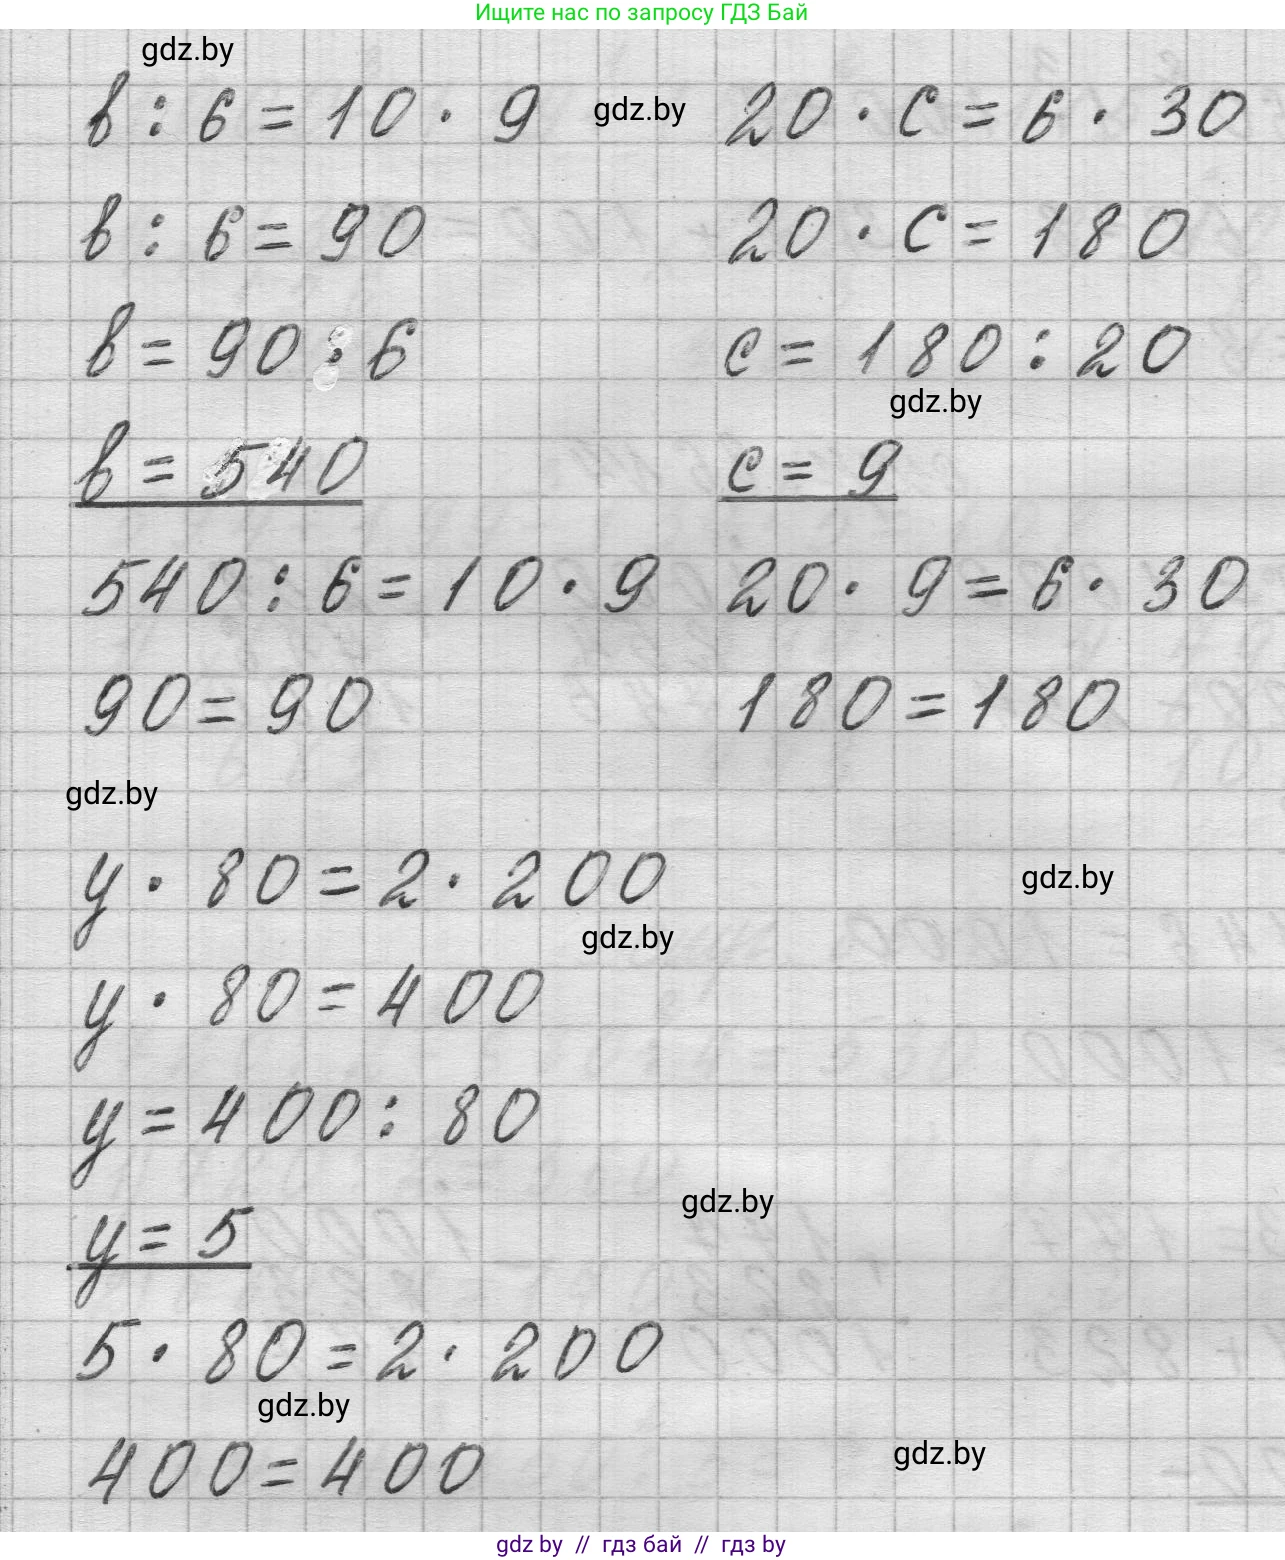 Ищите нас по запросу ГДЗ Бай
gdz.by
в : 6 = 10 · 9
gdz.by
20 · c = 6 · 30
в : 6 = 90
20 · c = 180
в = 90 · 6
c = 180 : 20
gdz.by
в = 540
c = 9
540 : 6 = 10 · 9
20 · 9 = 6 · 30
90 = 90
180 = 180
gdz.by
y · 80 = 2 · 200
gdz.by
gdz.by
y · 80 = 400
y = 400 : 80
gdz.by
y = 5
5 · 80 = 2 · 200
gdz.by
400 = 400
gdz.by
gdz by // гдз бай // гдз by